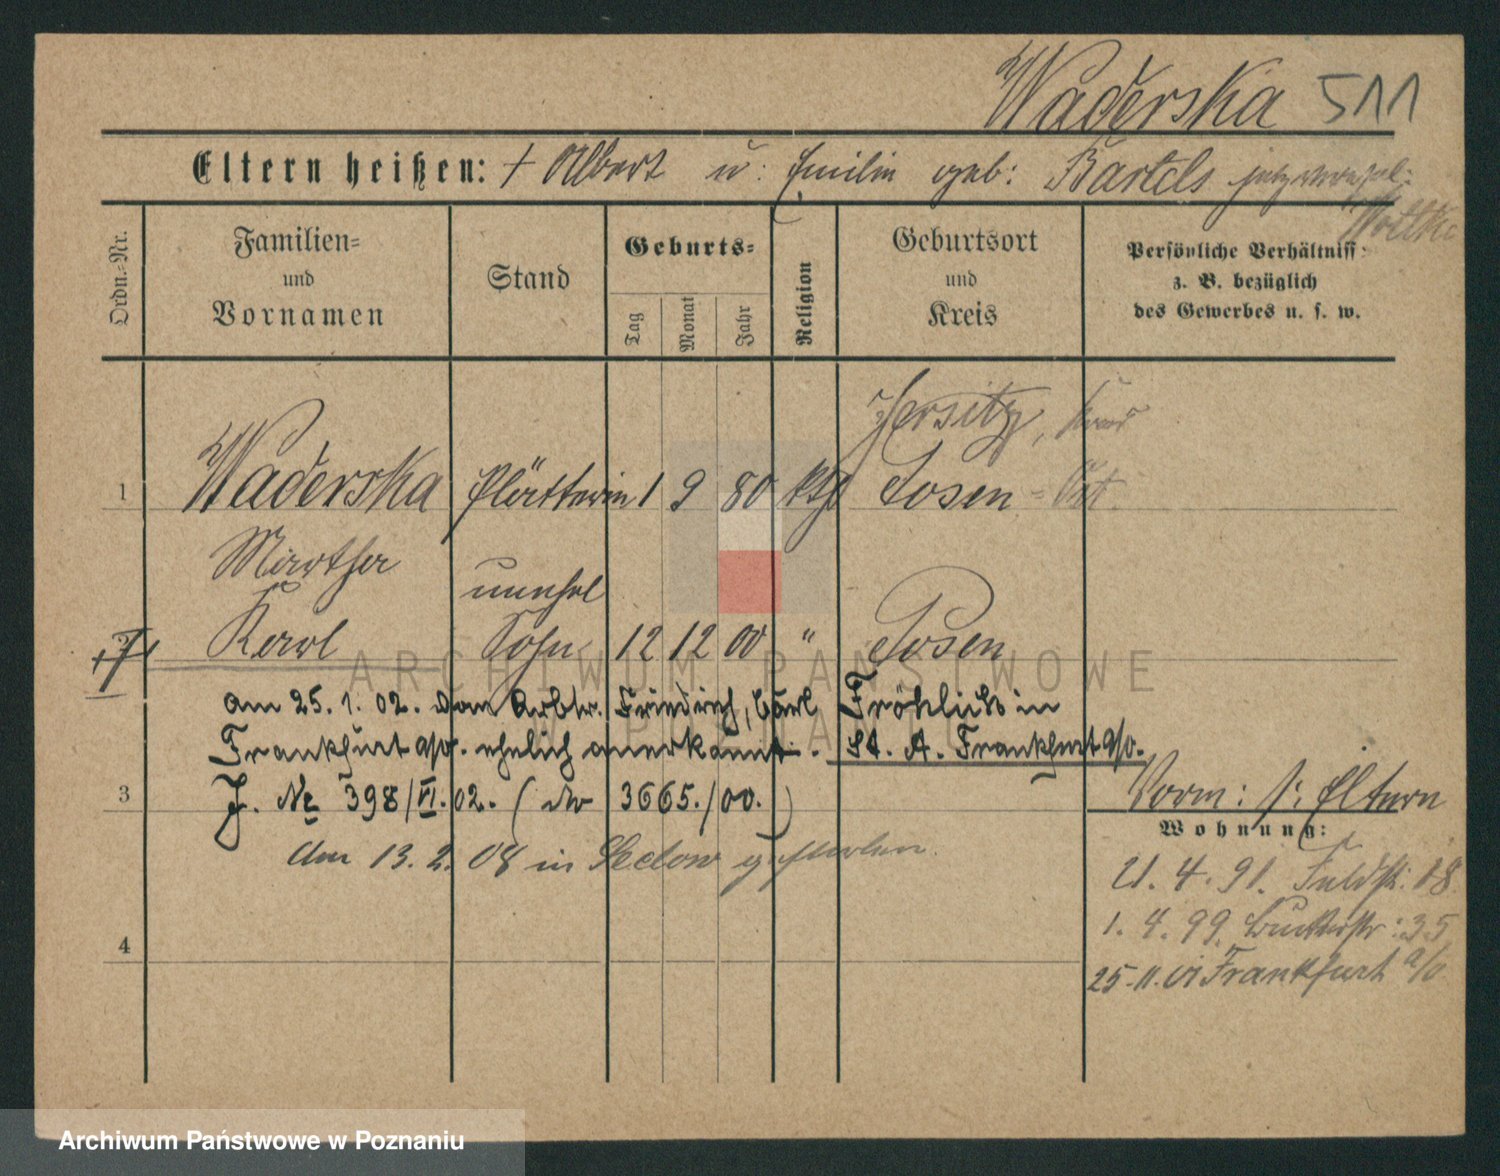 Waderska 511
Eltern heißen: + Albert u: Emilie geb: Bartels
Ordn.-Nr.
Familien-
und
Vornamen
Stand
Geburts-
Tag
Monat
Jahr
Religion
Geburtsort
und
Kreis
Persönliche Verhältniss
z. B. bezüglich
des Gewerbes u. s. w.
Jersitz, Kreis
1 Waderska Plätterin 1 9 80 kth Posen-Ost.
Martha unehel
Karl Sohn 12 12 00 " Posen
ARCHIWUM PAŃSTWOWE
W POZNANIU
am 25. 1. 02. von Arbtr. Friedrich, Carl Fröhlich in
Frankfurt a/o. ehelich anerkannt. St. A. Frankfurt a/o.
3 J. No 398/VI. 02. ( 3665./00. )
Am 13. 2. 08 in Seelow gestorben.
4
Vorm: s: Eltern
Wohnung:
21. 4. 91. Feldstr. 18.
1. 4. 99. 35
25. 11. 01 Frankfurt a/o.
Archiwum Państwowe w Poznaniu